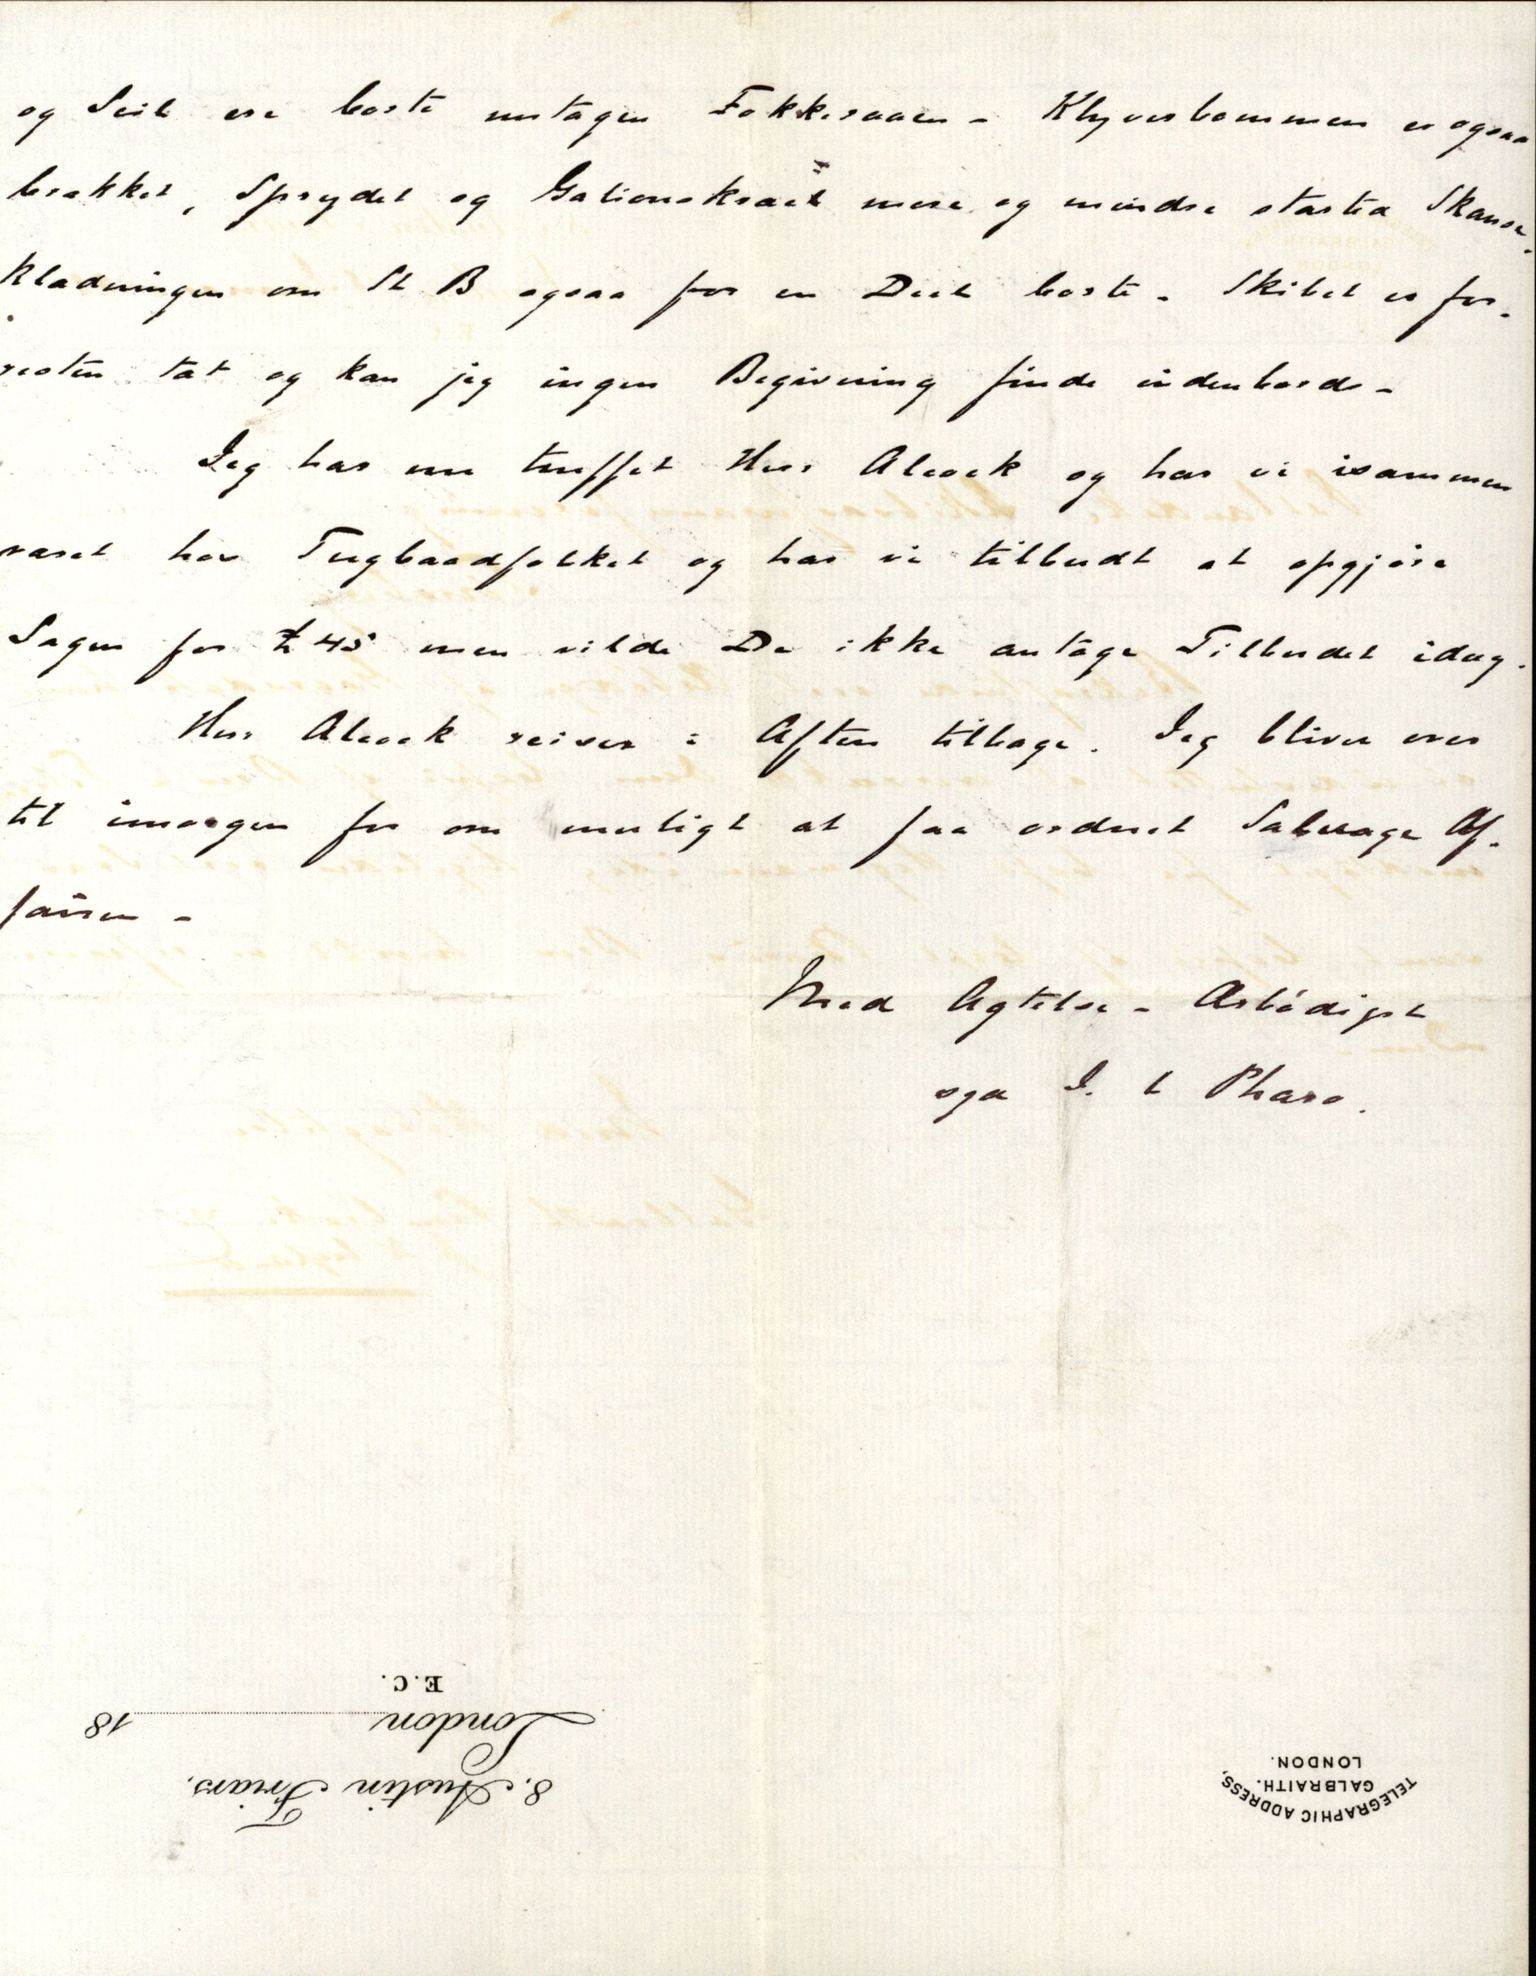 og Seil ere borte untagen Fokkeraaen - Klyverbommen er ogsaa
brækket, Sprydet og Galionskræet mere og mindre stærted Skandse-
klædningen om St B ogsaa for en Deel borte - Skibet er for-
resten tæt og kan jeg ingen Begivning finde indenbords -
Jeg har nu truffet Herr Alcock og har vi isammen
været hos Tugbaadfolket og har vi tilbudt at opgjøre
Sagen for £45 men vilde De ikke antage Tilbudet idag.
Herr Alcock reiser i Aften tilbage. Jeg bliver over
til imorgen for om muligt at faa ordnet Salvage Af-
fairen -
Med Agtelse - Ærbødigst
sga I. L Pharo.
8. Austin Friars.
London 18
E.C.
TELEGRAPHIC ADDRESS,
GALBRAITH.
LONDON.